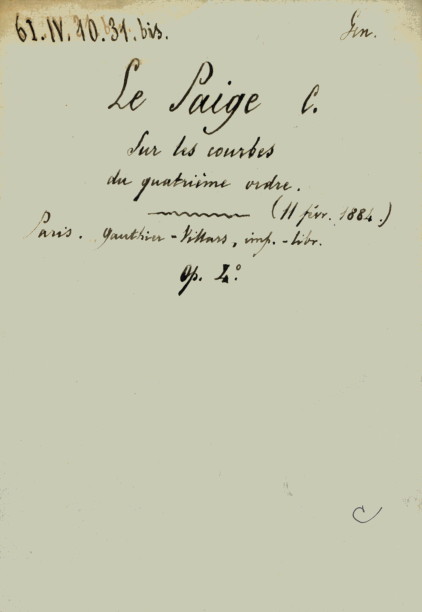 61.IV.10.31.bis.
Gen.
Le Paige C.
Sur les courbes
du quatrième ordre.
(11 févr. 1884.)
Paris. Gauthier-Villars, imp.-libr.
Op. 4°.
C